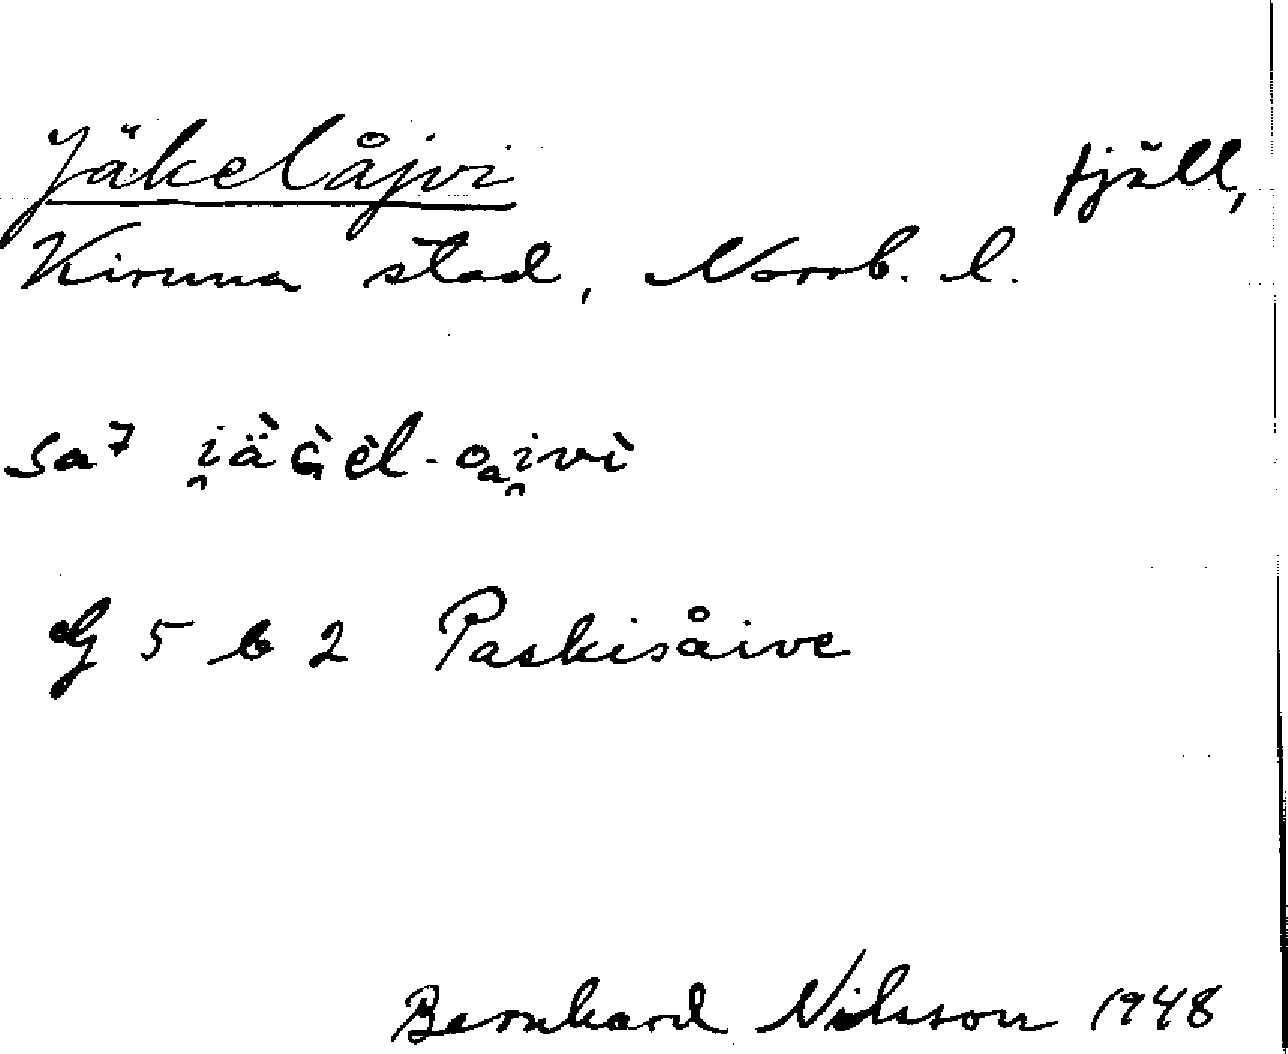 Jäkelåjvi fjäll,
Kiruna stad, Norrb. l.
sa⁷ i̯ä̀G̀èl-oₐi̯vì
G 5 b 2 Paskisåive
Bernhard Nilsson 1948